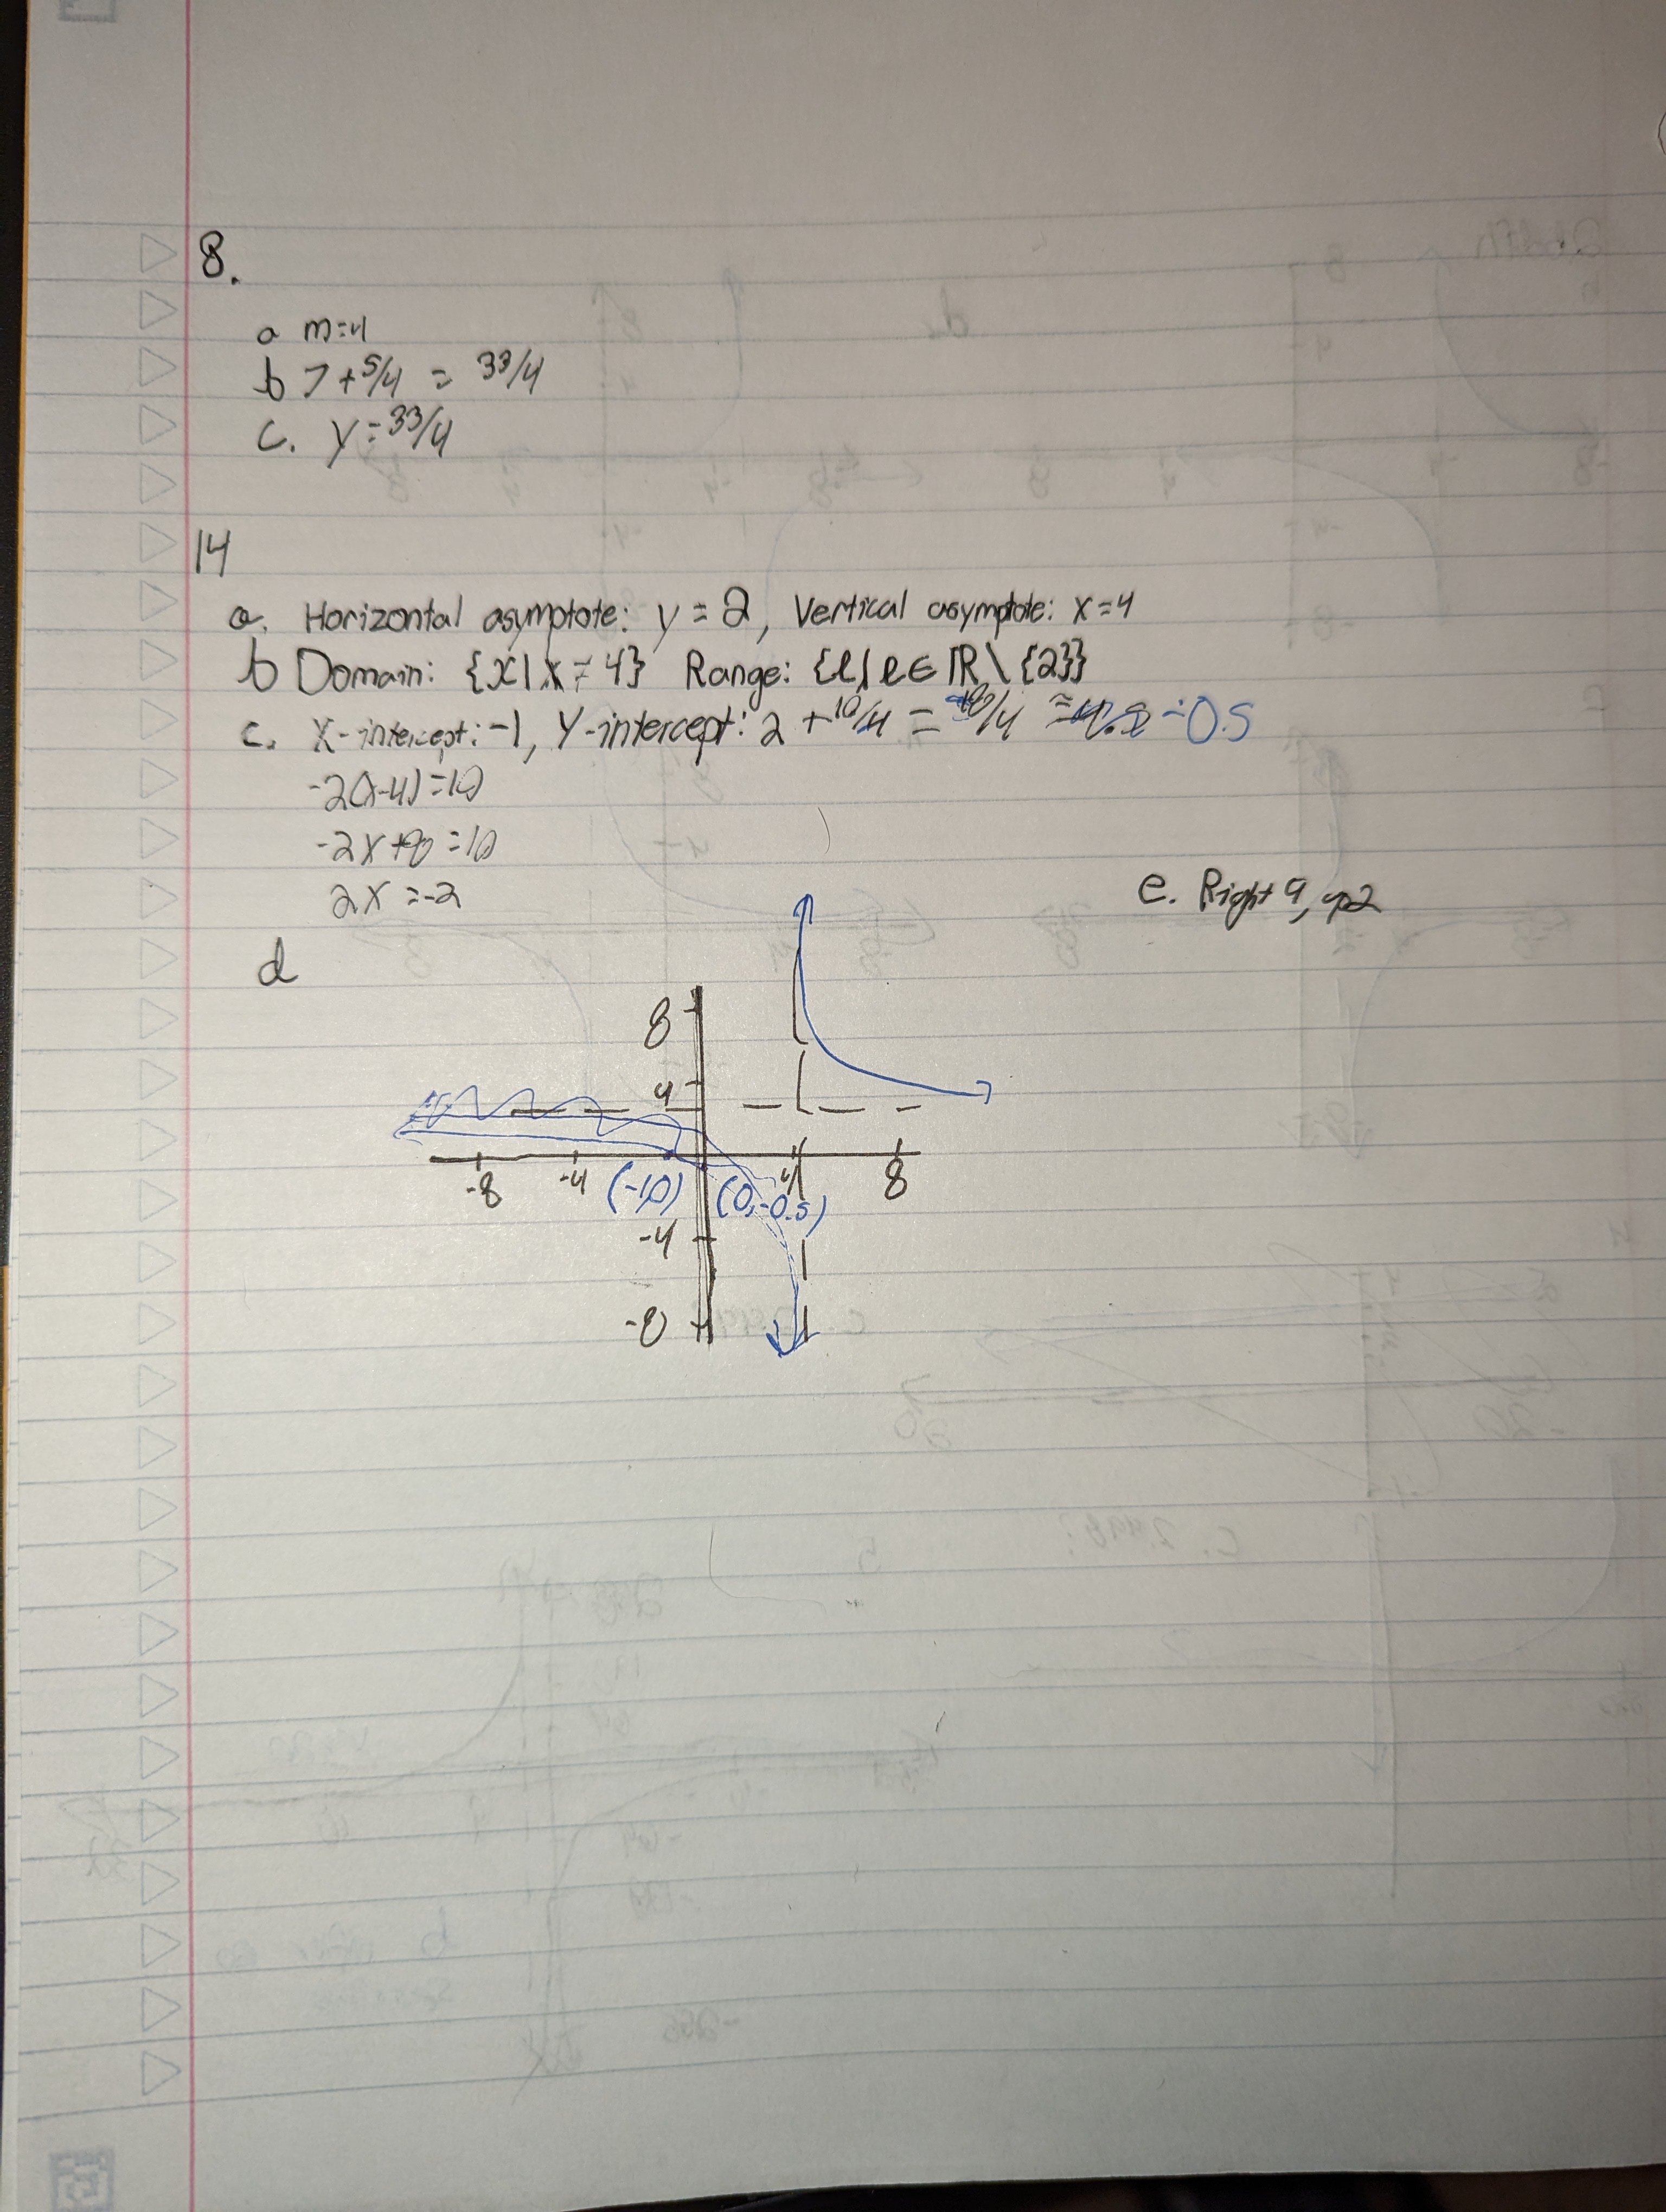 8.
a m=4
b 7 + 5/4 = 33/4
c. y = 33/4
14
a. Horizontal asymptote: y = 2, Vertical asymptote: x=4
b Domain: {x|x ≠ 4} Range: {l|l ∈ ℝ \ {2}}
c. X-intercept: -1, Y-intercept: 2 + 10/4 = /4 = -0.5
-2(x-4)=10
-2x+8=10
2x =-2
e. Right 4, up 2
d
8
4
-8 -4 (-1,0) (0,-0.5) 4 8
-4
-8